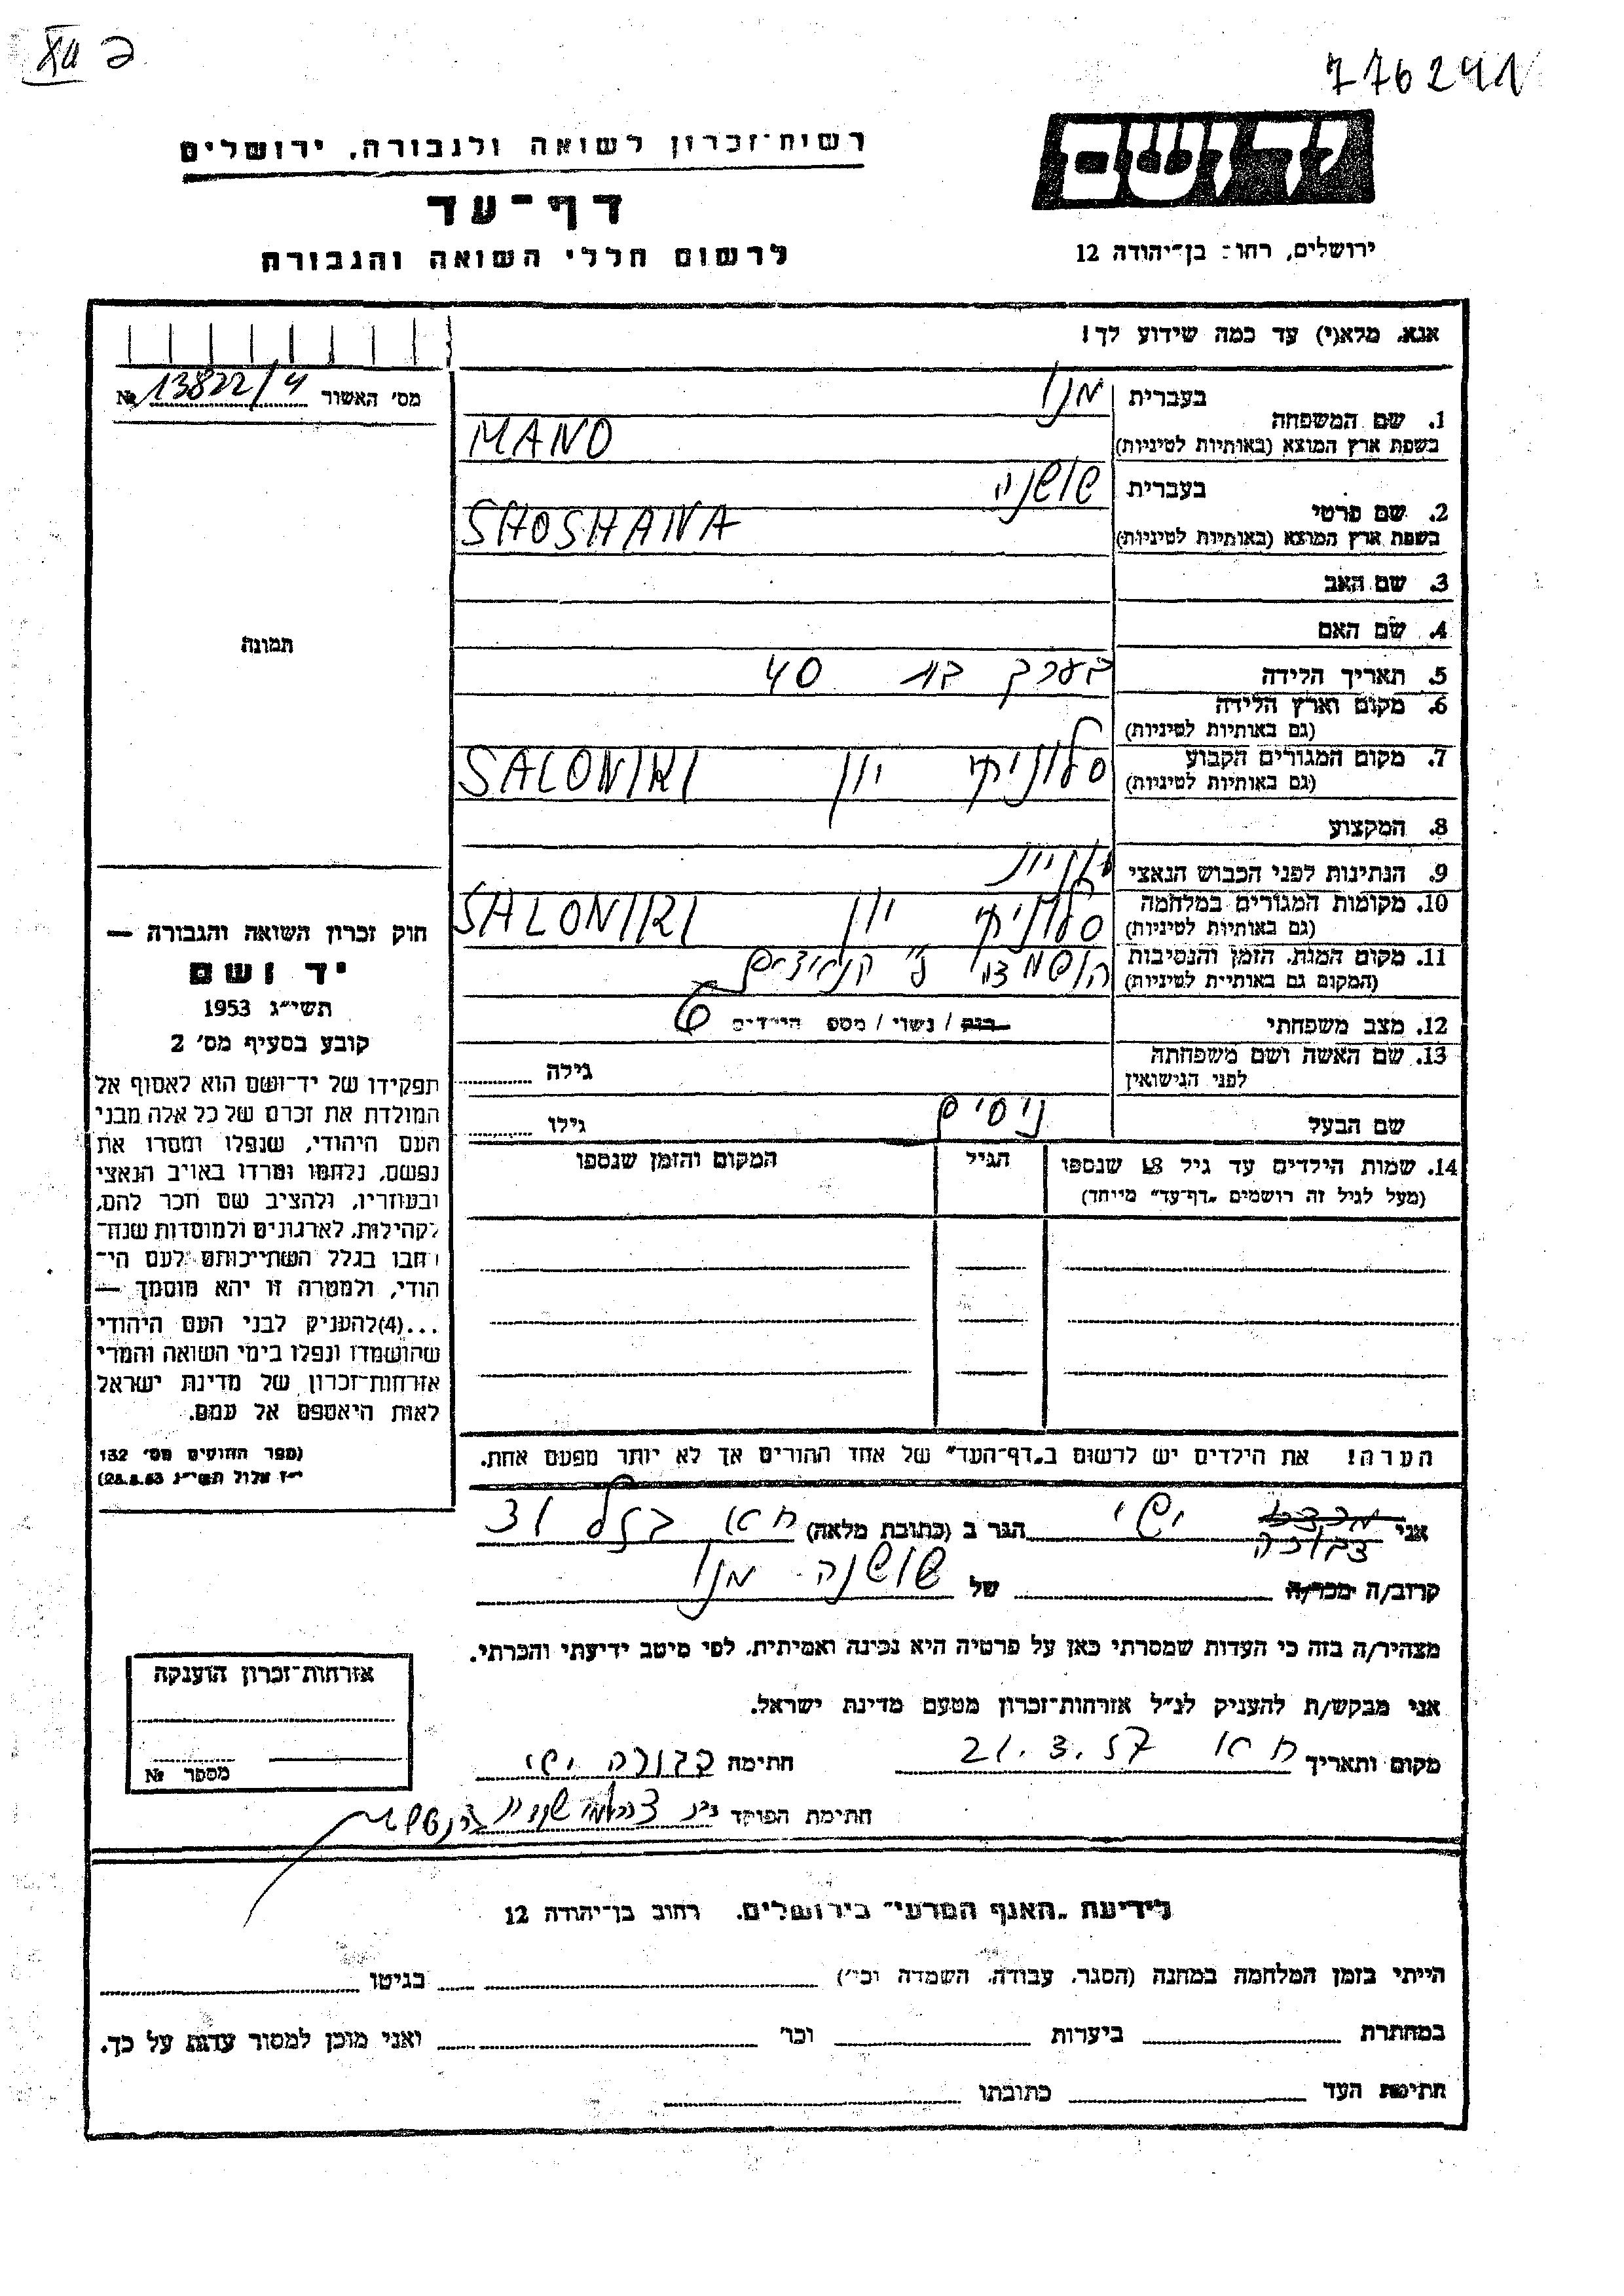 XII 2
776291
רשות־זכרון לשואה ולגבורה, ירושלים
דף־עד
לרשום חללי השואה והגבורה
יד ושם
ירושלים, רחוב בן־יהודה 12
אנא, מלא(י) עד כמה שידוע לך!
מס׳ האשור № 13822/4
1. שם המשפחה
בעברית מנו
בשפת ארץ המוצא (באותיות לטיניות) MANO
2. שם פרטי
בעברית שושנה
בשפת ארץ המוצא (באותיות לטיניות) SHOSHANA
3. שם האב
4. שם האם
5. תאריך הלידה בערך בת 40
6. מקום וארץ הלידה
(גם באותיות לטיניות)
7. מקום המגורים הקבוע סלוניקי יון SALONIKI
(גם באותיות לטיניות)
8. המקצוע
9. הנתינות לפני הכבוש הנאצי יונית
10. מקומות המגורים במלחמה סלוניקי יון SALONIKI
(גם באותיות לטיניות)
11. מקום המות, הזמן והנסיבות הושמדה ע״י הנאצים
(המקום גם באותיות לטיניות)
12. מצב משפחתי רווק / נשוי / מספר הילדים 6
13. שם האשה ושם משפחתה
לפני הנישואין
גילה
שם הבעל ניסים גילו
14. שמות הילדים עד גיל 18 שנספו
(מעל לגיל זה רושמים „דף־עד״ מיוחד)
הגיל
המקום והזמן שנספו
הערה! את הילדים יש לרשום ב„דף־העד״ של אחד ההורים אך לא יותר מפעם אחת.
תמונה
חוק זכרון השואה והגבורה —
יד ושם
תשי״ג 1953
קובע בסעיף מס׳ 2
תפקידו של יד־ושם הוא לאסוף אל
המולדת את זכרם של כל אלה מבני
העם היהודי, שנפלו ומסרו את
נפשם, נלחמו ומרדו באויב הנאצי
ובעוזריו, ולהציב שם וזכר להם,
לקהילות, לארגונים ולמוסדות שנח־
רבו בגלל השתייכותם לעם הי־
הודי, ולמטרה זו יהא מוסמך —
...(4)להעניק לבני העם היהודי
שהושמדו ונפלו בימי השואה והמרי
אזרחות־זכרון של מדינת ישראל
לאות היאספם אל עמם.
(ספר החוקים מס׳ 132
י״ז אלול תשי״ג 28.8.53)
אני ישי הגר ב (כתובת מלאה)
דבורה
קרוב/ה מכר/ה של שושנה מנו
מצהיר/ה בזה כי העדות שמסרתי כאן על פרטיה היא נכונה ואמיתית, לפי מיטב ידיעתי והכרתי.
אני מבקש/ת להעניק לנ״ל אזרחות־זכרון מטעם מדינת ישראל.
מקום ותאריך 21.3.57 חתימה דבורה ישי
חתימת הפוקד
אזרחות־זכרון הוענקה
מספר №
לידיעת „האגף המדעי״ בירושלים, רחוב בן־יהודה 12
הייתי בזמן המלחמה במחנה (הסגר, עבודה, השמדה וכו׳) בגיטו
במחתרת ביערות וכו׳ ואני מוכן למסור עדות על כך.
חתימת העד כתובתו